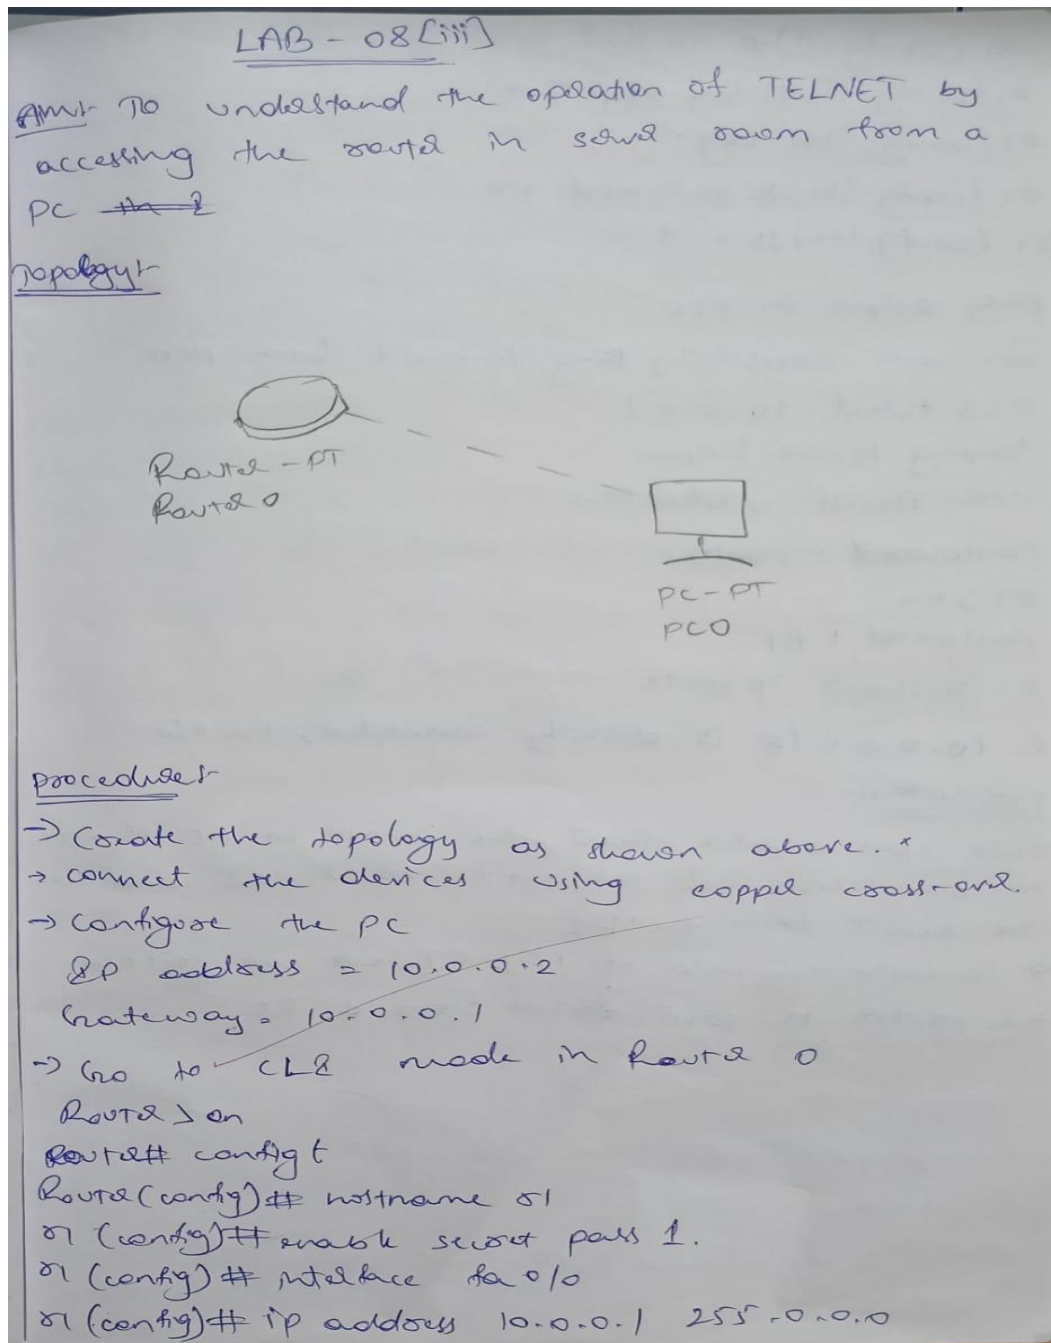 LAB - 08 [iii]
Aim:- To understand the operation of TELNET by
accessing the router in server room from a
PC
Topology:-
Router - PT
Router 0
PC-PT
PC0
procedure:-
→ Create the topology as shown above.
→ connect the devices using copper cross-over.
→ Configure the PC
IP address = 10.0.0.2
Gateway = 10.0.0.1
→ Go to CLI mode in Router 0
Router > en
Router# config t
Router (config)# hostname r1
r1 (config)# enable secret pass 1.
r1 (config) # interface fa 0/0
r1 (config)# ip address 10.0.0.1 255.0.0.0